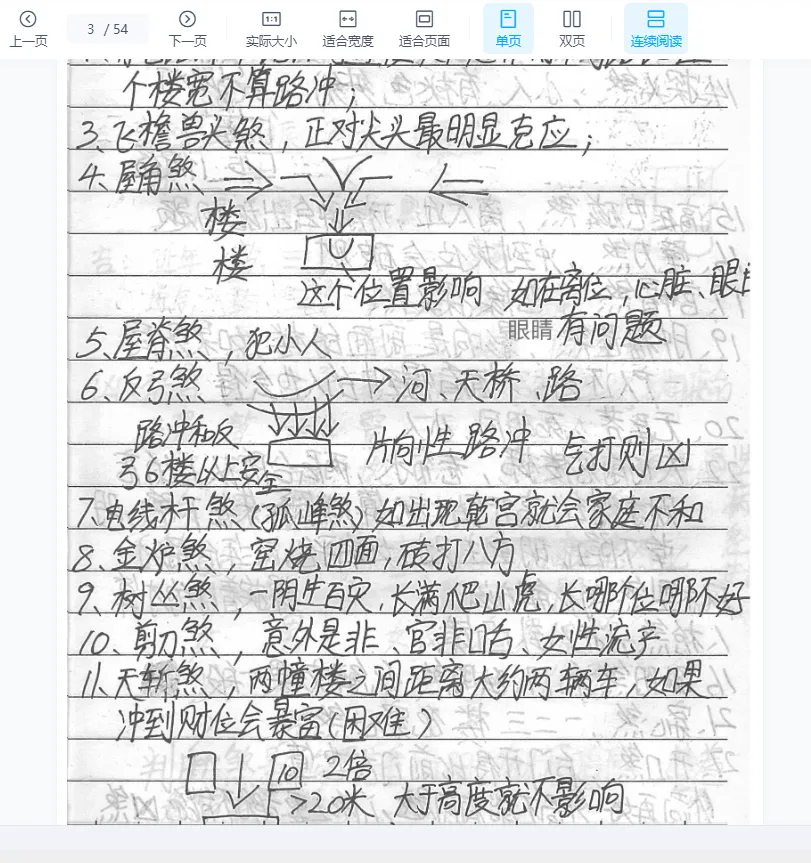 上一页
3 / 54
下一页
1:1
实际大小
适合宽度
适合页面
单页
双页
连续阅读
个楼宽不算路冲；
3、飞檐兽头煞，正对尖头最明显克应；
4、屋角煞
楼
楼
这个位置影响 如在离位，心脏、眼睛
眼睛 有问题
5、屋脊煞，犯小人
6、反弓煞 河、天桥、路
路冲和反
弓6楼以上安全
片向性路冲 乞打则凶
7、电线杆煞（孤峰煞）如出现乾宫就会家庭不和
8、金炉煞，窑烧四面，砖打八方
9、树丛煞，一阴生百灾，长满爬山虎，长哪个位哪不好
10、剪刀煞，意外是非、官非口舌、女性流产
11、天斩煞，两幢楼之间距离大约两辆车，如果
冲到财位会暴富（困难）
10 2倍
>20米 大于高度就不影响